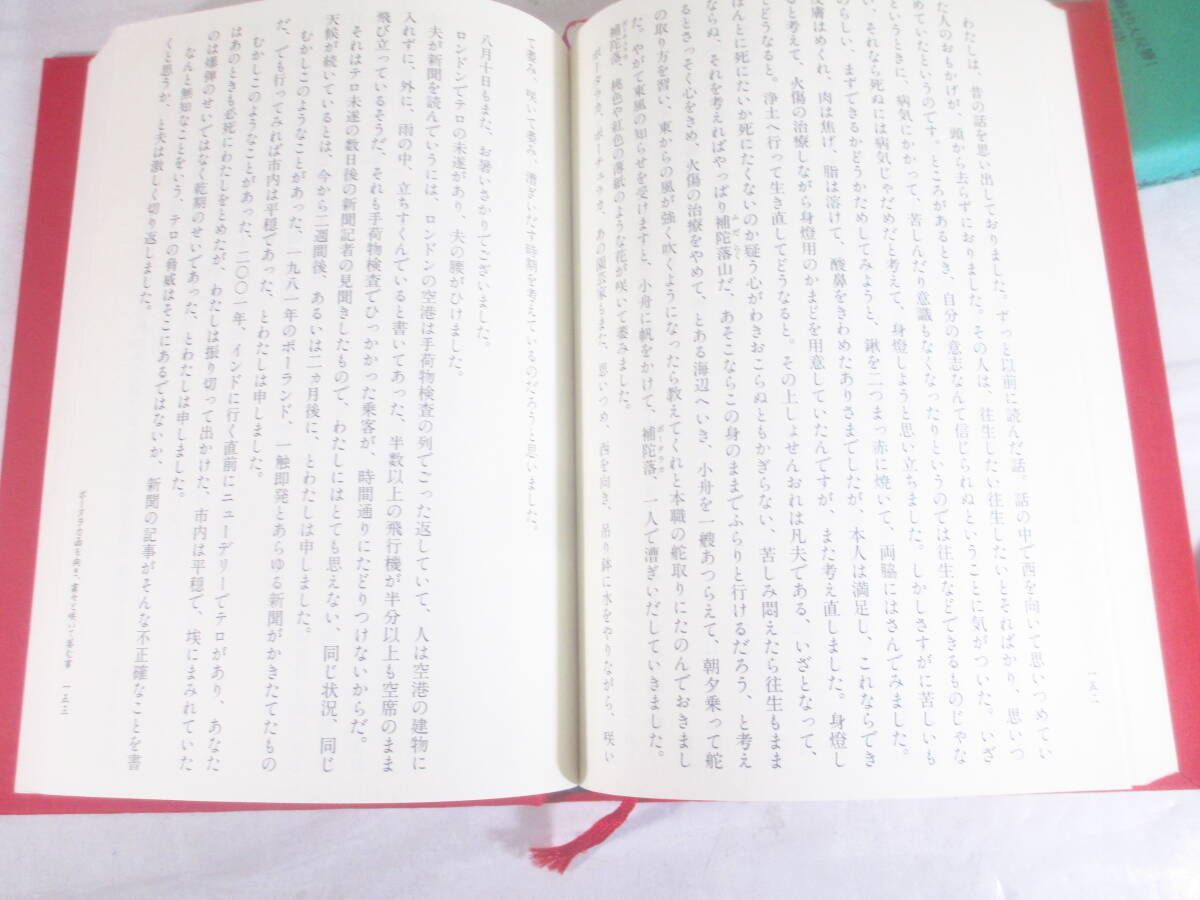 わたしは、昔の話を思い出しておりました。ずっと以前に読んだ話。話の中で西を向いて思いつめてい
た人のおもかげが、頭から去らずにおりました。その人は、往生したい往生したいとそればかり、思いつ
めていたというのです。ところがあるとき、自分の意志なんて信じられぬということに気がついた。いざ
というときに、病気にかかって、苦しんだり意識もなくなったりというのでは往生などできるものじゃな
い、それなら死ぬには病気じゃだめだと考えて、身燈しようと思い立ちました。しかしさすがに苦しいも
のらしい、まずできるかどうかためしてみようと、鍬を二つまっ赤に焼いて、両脇にはさんでみました。
皮膚はめくれ、肉は焦げ、脂は溶けて、酸鼻をきわめたありさまでしたが、本人は満足し、これならでき
ると考えて、火傷の治療しながら身燈用のかまどを用意していたんですが、また考え直しました。身燈し
てどうなると。浄土へ行って生き直してどうなると。その上しょせんおれは凡夫である、いざとなって、
ほんとに死にたいか死にたくないのか疑う心がわきおこらぬともかぎらない、苦しみ悶えたら往生もまま
ならぬ、それを考えればやっぱり補陀落山だ、あそこならこの身のままでふらりと行けるだろう、と考え
るとさっそく心をきめ、火傷の治療をやめて、とある海辺へいき、小舟を一艘あつらえて、朝夕乗って舵
の取り方を習い、東からの風が強く吹くようになったら教えてくれと本職の舵取りにたのんでおきまし
た。やがて東風の知らせを受けますと、小舟に帆をかけて、補陀落、一人で漕ぎいだしていきました。
補陀落、桃色や紅色の薄紙のような花が咲いて萎みました。
ポータラカ、ポーチュラカ、あの園芸家もまた、思いつめ、西を向き、吊り鉢に水をやりながら、咲い
一五二
て萎み、咲いて萎み、漕ぎいだす時期を考えているのだろうと思いました。
八月十日もまた、お暑いさかりでございました。
ロンドンでテロの未遂があり、夫の腰がひけました。
夫が新聞を読んでいうには、ロンドンの空港は手荷物検査の列でごった返していて、人は空港の建物に
入れずに、外に、雨の中、立ちすくんでいると書いてあった、半数以上の飛行機が半分以上も空席のまま
飛び立っているそうだ、それも手荷物検査でひっかかった乗客が、時間通りにたどりつけないからだ。
それはテロ未遂の数日後の新聞記者の見聞きしたもので、わたしにはとても思えない、同じ状況、同じ
天候が続いているとは、今から二週間後、あるいは二ヵ月後に、とわたしは申しました。
むかしこのようなことがあった、一九八一年のポーランド、一触即発とあらゆる新聞がかきたてたもの
だ、でも行ってみれば市内は平穏であった、とわたしは申しました。
むかしこのようなことがあった、二〇〇一年、インドに行く直前にニューデリーでテロがあり、あなた
はあのときも必死にわたしをとめたが、わたしは振り切って出かけた、市内は平穏で、埃にまみれていた
のは爆弾のせいではなく乾期のせいであった、とわたしは申しました。
なんと無知なことをいう、テロの脅威はそこにあるではないか、新聞の記事がそんな不正確なことを書
くと思うか、と夫は激しく切り返しました。
一五三